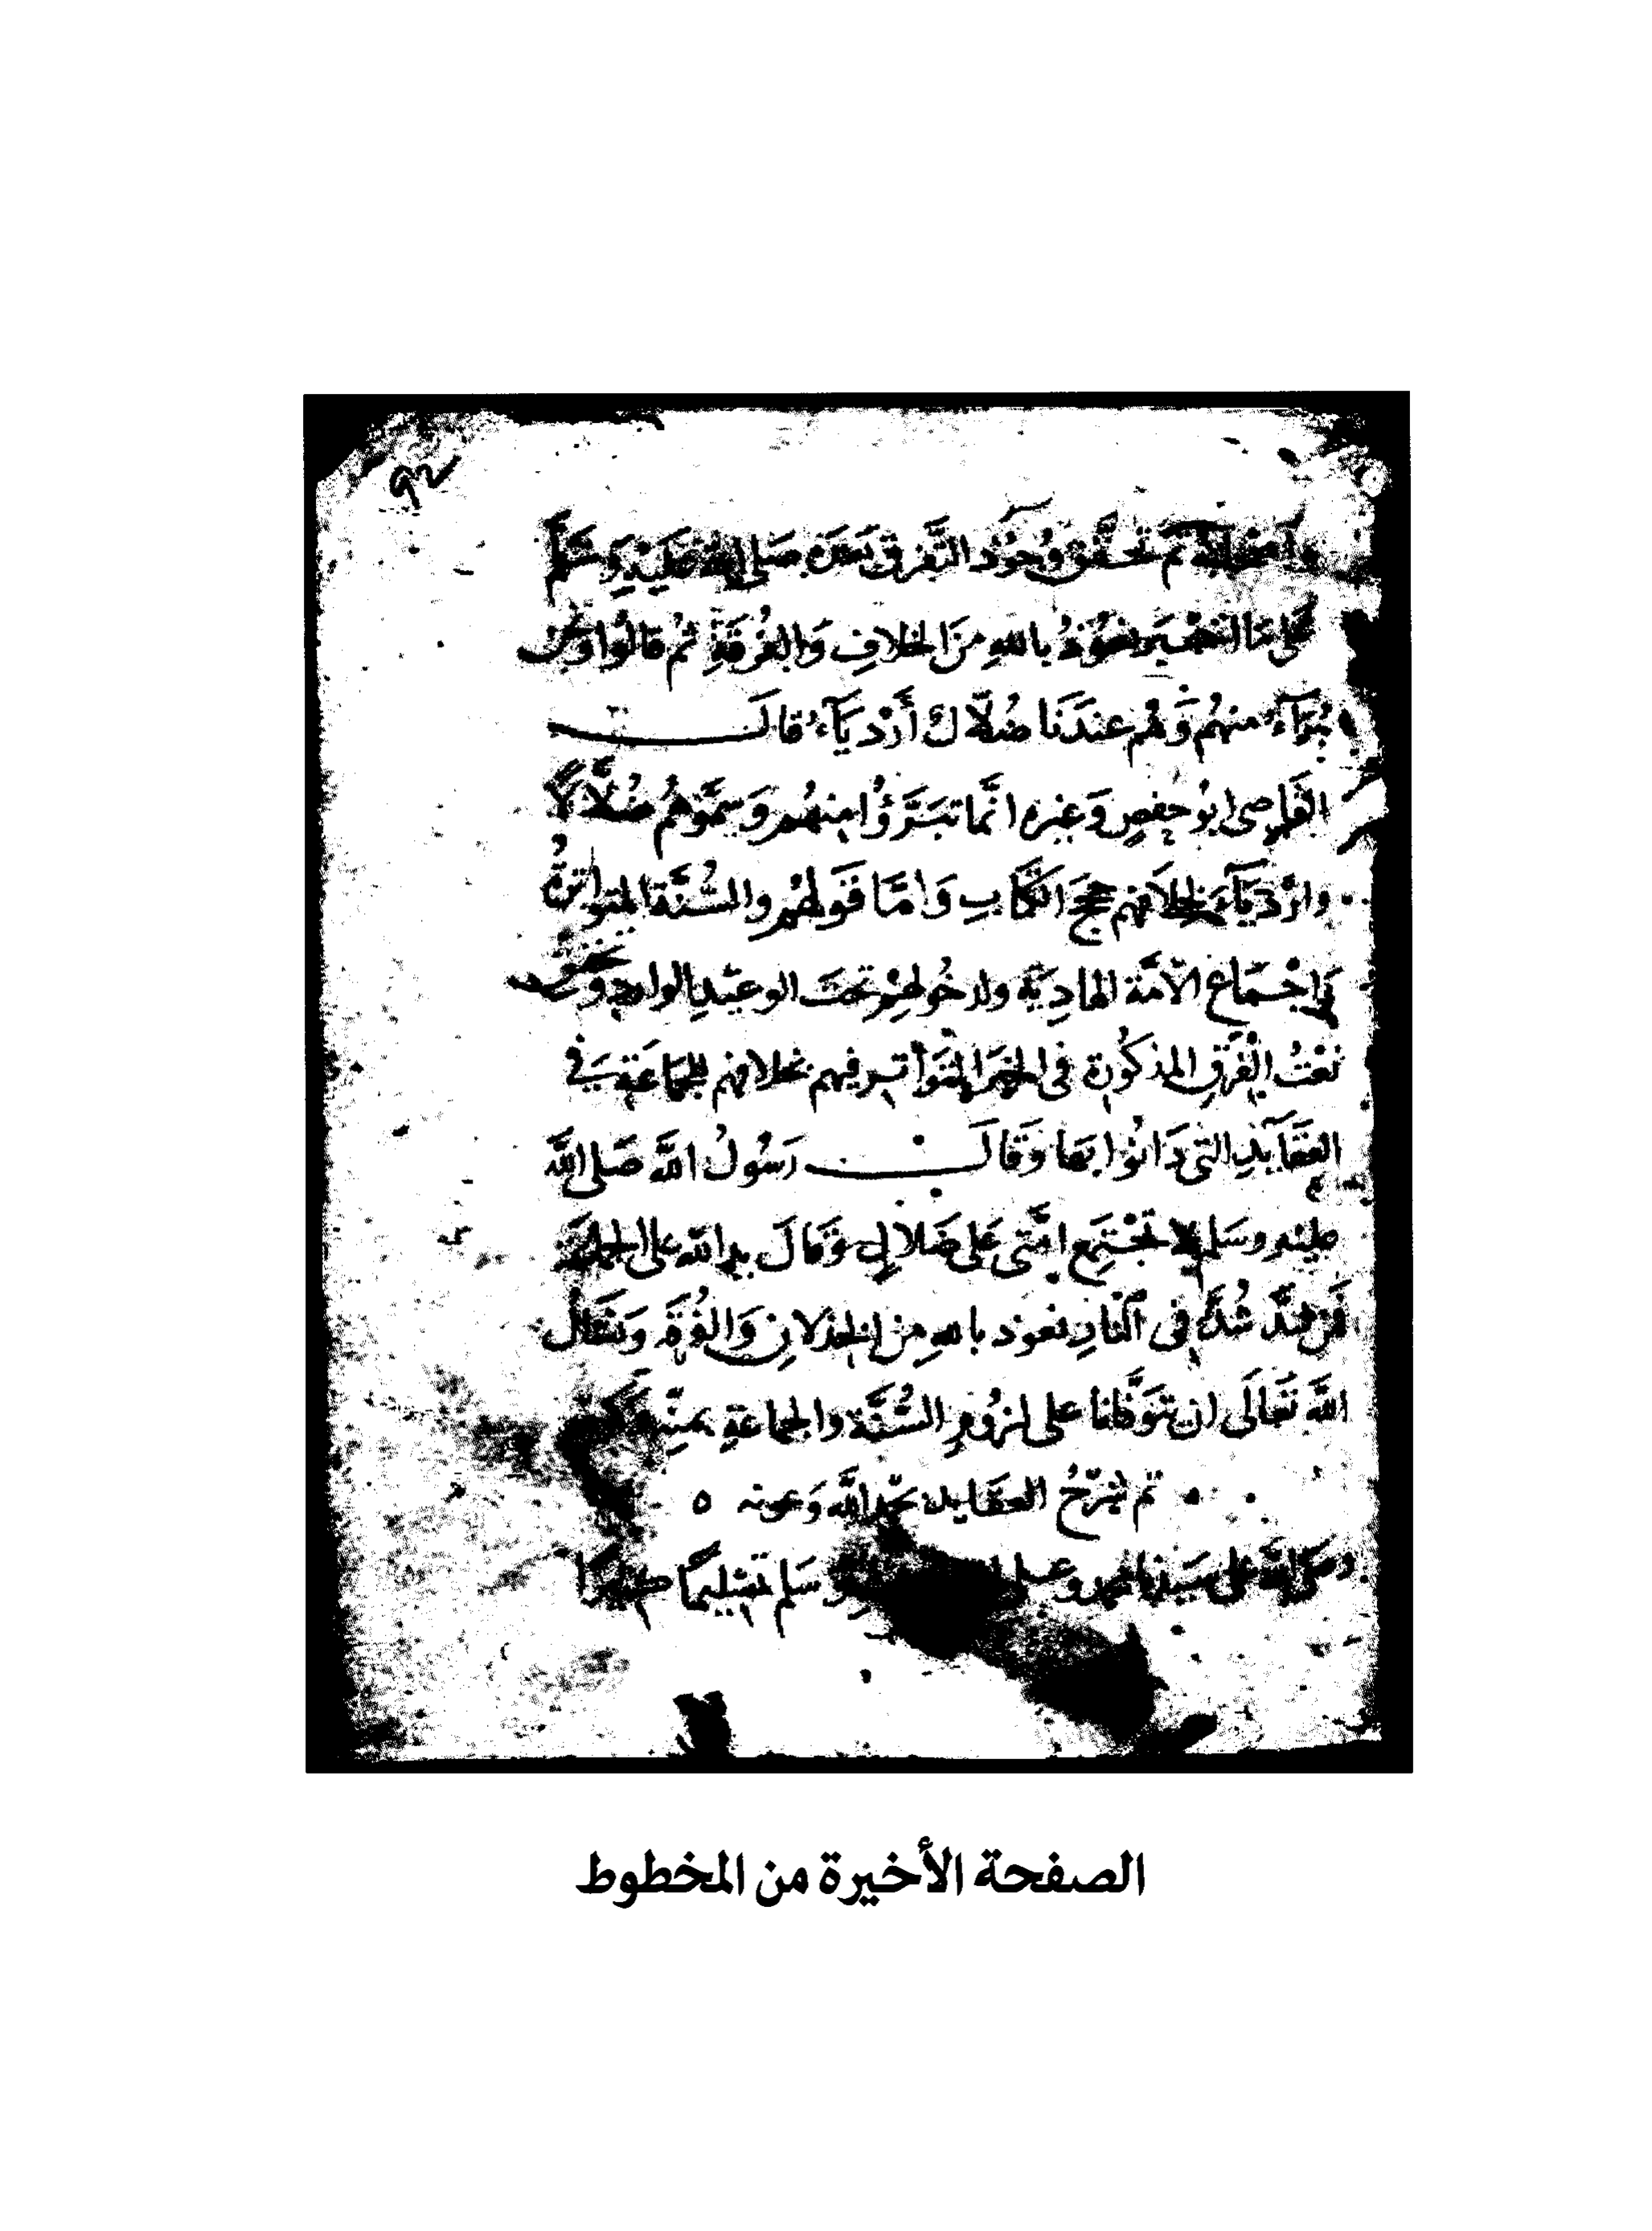 92
وأصحابه ثم تحقق وجود التفرق بعده صلى الله عليه وسلم
بالله من الخلاف والفرقة ثم قالوا ونحن
برآء منهم وهم عندنا ضلال أردياء قال
القاضي ابو حفص وغيره انما تبرؤا منهم وسموهم ضلالا
وأردياء لخلافهم حجج الكتاب والسنة المتواترة
اجماع الأمة الهادية ولدخولهم تحت الوعيد الوارد
نعت الفرق المذكورة في الخبر المتواتر فيهم بخلافهم للجماعة في
العقايد التي دانوا بها وقال رسول الله صلى الله
عليه وسلم لا تجتمع امتي على ضلال وقال يد الله على الجماعة
فمن شذ شذ في النار نعوذ بالله من الخذلان والفرقة ونسأل
الله تعالى ان يتوفانا على لزوم السنة والجماعة بمنه
تم شرح العقايد بحمد الله وعونه ه
وصلى الله على سيدنا محمد وعلى وسلم تسليما كثيرا
الصفحة الأخيرة من المخطوط